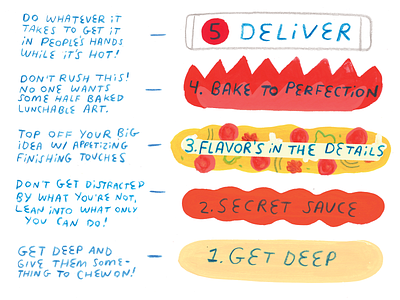 DO WHATEVER IT
TAKES TO GET IT
IN PEOPLE'S HANDS
WHILE IT'S HOT!
5 DELIVER
DON'T RUSH THIS!
NO ONE WANTS
SOME HALF BAKED
LUNCHABLE ART.
4. BAKE TO PERFECTION
TOP OFF YOUR BIG
IDEA W/ APPETIZING
FINISHING TOUCHES
3. FLAVOR'S IN THE DETAILS
DON'T GET DISTRACTED
BY WHAT YOU'RE NOT,
LEAN INTO WHAT ONLY
YOU CAN DO!
2. SECRET SAUCE
GET DEEP AND
GIVE THEM SOME-
THING TO CHEW ON!
1. GET DEEP